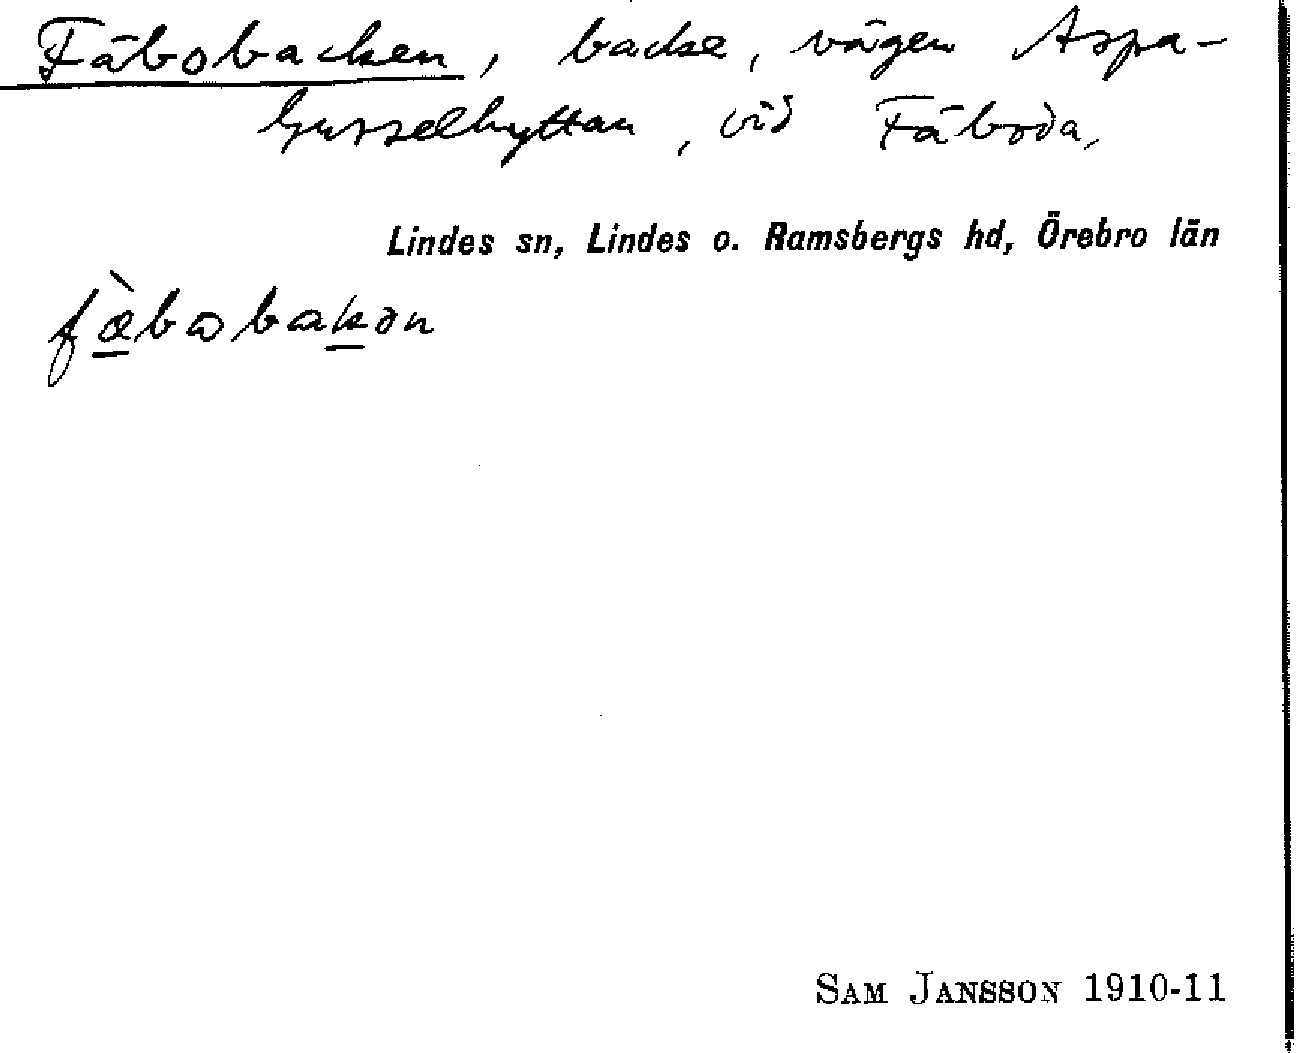 Fäbobacken, backe, vägen Aspa-
Gusselhyttan, vid Fäboda,
Lindes sn, Lindes o. Ramsbergs hd, Örebro län
fæ̀bωbakən
SAM JANSSON 1910-11